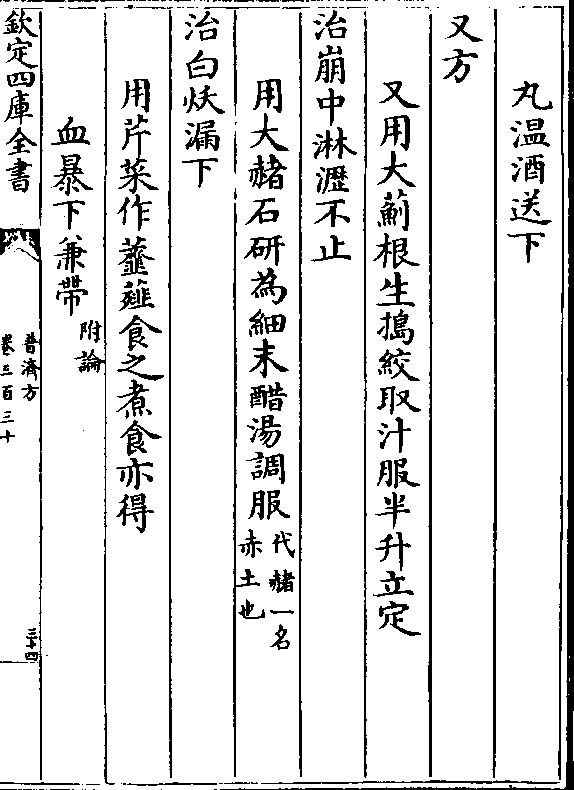 丸温酒送下
又方
又用大薊根生搗絞取汁服半升立定
治崩中淋瀝不止
用大赭石研為細末醋湯調服代赭一名赤土也
治白㳄漏下
用芹菜作虀薤食之煮食亦得
血暴下兼帶附論
欽定四庫全書
普濟方
卷三百三十
三十四